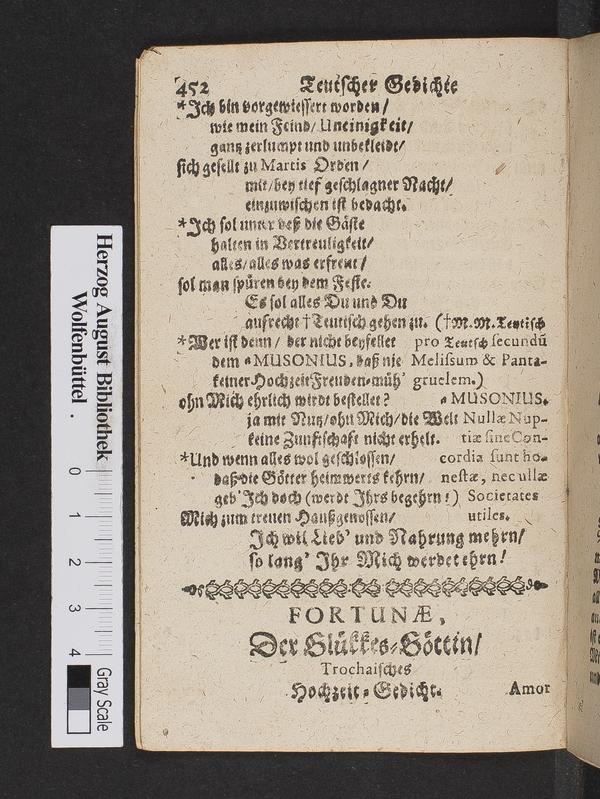 452 Teutscher Gedichte
*Ich bin vorgewiessert worden/
wie mein Feind/ Uneinigkeit/
gantz zerlumpt und unbekleidt/
sich gesellt zu Martis Orden/
mit/bey tief geschlagner Nacht/
einzuwischen ist bedacht.
*Ich sol unter deß die Gäste
halten in Vertreuligkeit/
alles/alles was erfreut/
sol man spüren bey dem Feste.
Es sol alles Du und Du
aufrecht †Teutisch gehen zu. (†M.M.Teutisch
*Wer ist denn/ der nicht beyfellet pro Teutsch secundū
dem a MUSONIUS, daß nie Melissum & Panta-
keiner Hochzeit Freuden-müh' gruelem.)
ohn Mich ehrlich wirdt bestellet? a MUSONIUS.
ja mit Nutz/ohn Mich/die Welt Nullæ Nup-
keine Zunftschaft nicht erhelt. tiæ sine Con-
*Und wenn alles wol geschlossen/ cordia sunt ho-
daß die Götter heimwerts kehrn/ nestæ, nec ullæ
geb' Ich doch (werdt Ihrs begehrn!) Societates
Mich zum treuen Haußgenossen/ utiles.
Ich wil Lieb' und Nahrung mehrn/
so lang' Ihr Mich werdet ehrn!
FORTUNÆ,
Der Glükkes-Göttin/
Trochaisches
Hochzeit-Gedicht.
Amor
Herzog August Bibliothek
Wolfenbüttel.
0 1 2 3 4
Gray Scale